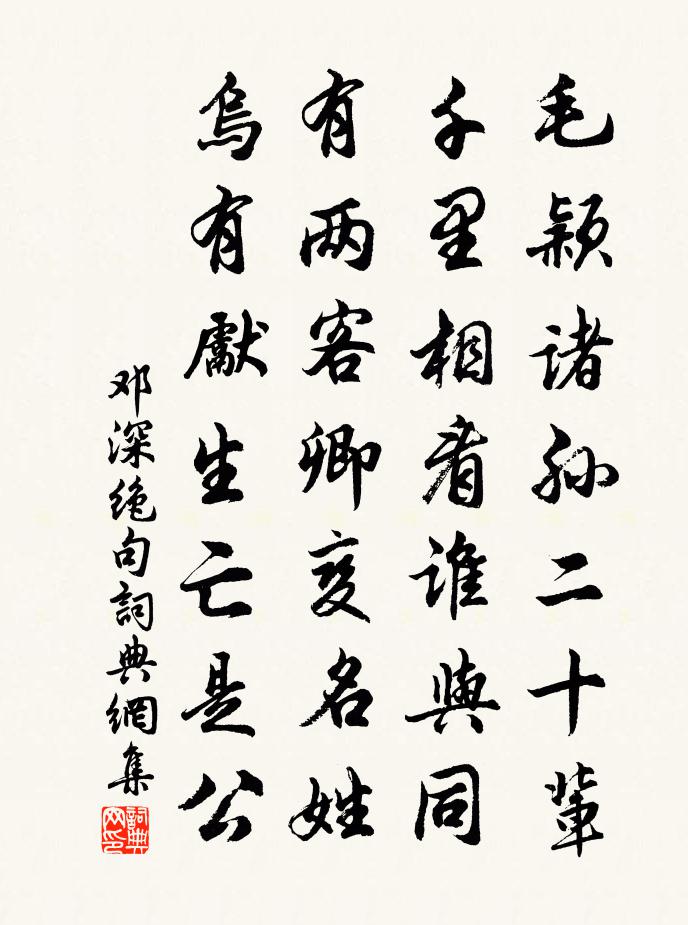 毛颖诸孙二十辈
千里相看谁與同
有两客卿变名姓
烏有獻生亡是公
邓深绝句詞典網集
詞典网印